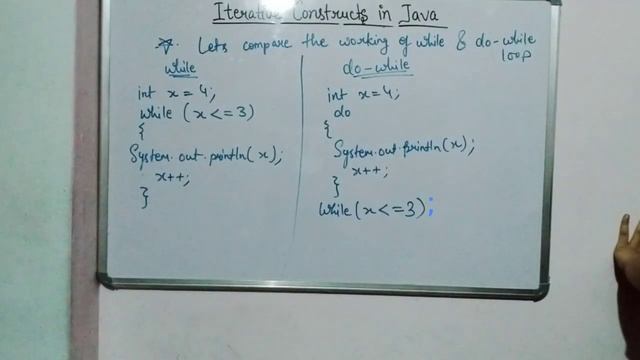 Iterative Constructs in Java
☆. Lets compare the working of while & do-while
loop
while
int x = 4;
while (x <= 3)
{
System.out.println(x);
x++;
}
do-while
int x=4;
do
{
System.out.println(x);
x++;
}
while(x<=3);